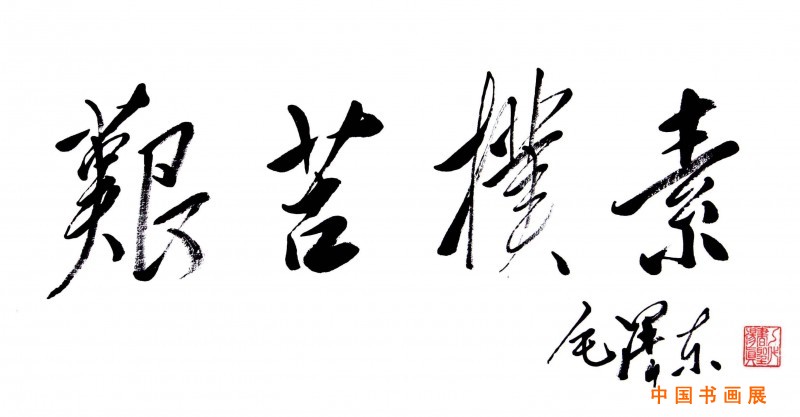 艱苦樸素
毛澤东
中国书画展